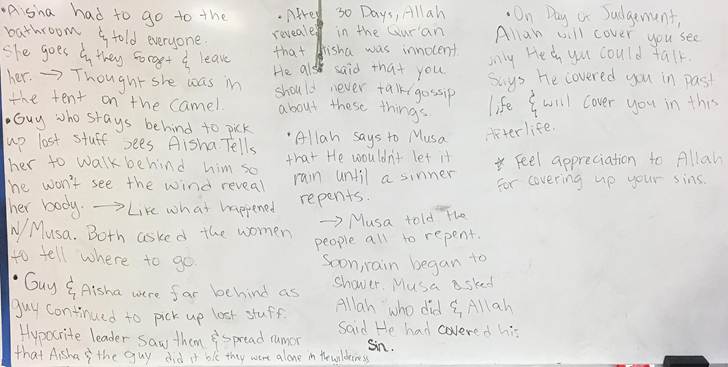 • Aisha had to go to the
bathroom & told everyone.
She goes & they forget & leave
her. → Thought she was in
the tent on the camel.
• Guy who stays behind to pick
up lost stuff sees Aisha Tells
her to walk behind him so
he won't see the wind reveal
her body. → Like what happened
w/Musa. Both asked the women
to tell where to go.
• Guy & Aisha were far behind as
guy continued to pick up lost stuff.
Hypocrite leader saw them & spread rumor
that Aisha & the guy did it b/c they were alone in the wilderness
• After 30 Days, Allah
revealed in the Qur'an
that Aisha was innocent.
He also said that you
should never talk/gossip
about these things.
• Allah says to Musa
that He wouldn't let it
rain until a sinner
repents.
→ Musa told the
people all to repent.
Soon, rain began to
shower. Musa asked
Allah who did & Allah
said He had covered his
sin.
• On Day of Judgement,
Allah will cover you see
only He & you could talk.
Says He covered you in past
life & will cover you in this
Afterlife.
* Feel appreciation to Allah
for covering up your sins.